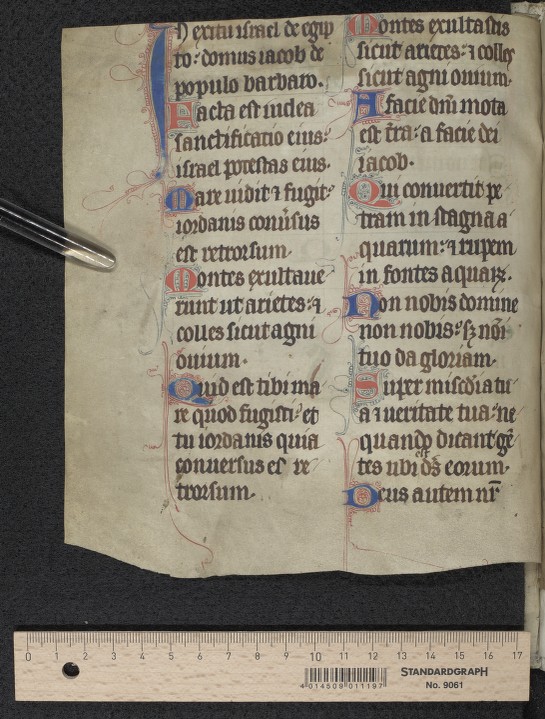 In exitu israel de egip
to⁊ domus iacob de
populo barbaro.
Facta est iudea
sanctificatio eius⁊
israel potestas eius.
Mare uidit ⁊ fugit⁊
iordanis conu̾sus
est retrorsum.
Montes exultaue
runt ut arietes⁊ ⁊
colles sicut agni
ouium.
Quid est tibi ma
re quod fugisti⁊ et
tu iordanis quia
conuersus es re
trorsum.
Montes exultastis
sicut arietes⁊ ⁊ colles
sicut agni ouium.
A facie dn̄i mota
est t̄ra⁊ a facie dei
iacob.
Qui conuertit pe
tram in stagna a
quarum⁊ ⁊ rupem
in fontes aquaꝝ.
Non nobis domine
non nobis⁊ sꝫ nōi
tuo da gloriam.
Super mīscd̄ia tu
a ⁊ ueritate tua⁊ ne
quando dicant gē
tes ubi est ds̄ eorum.
Deus autem nr̄
0 1 2 3 4 5 6 7 8 9 10 11 12 13 14 15 16 17
STANDARDGRAPH
No. 9061
4 014509 011197